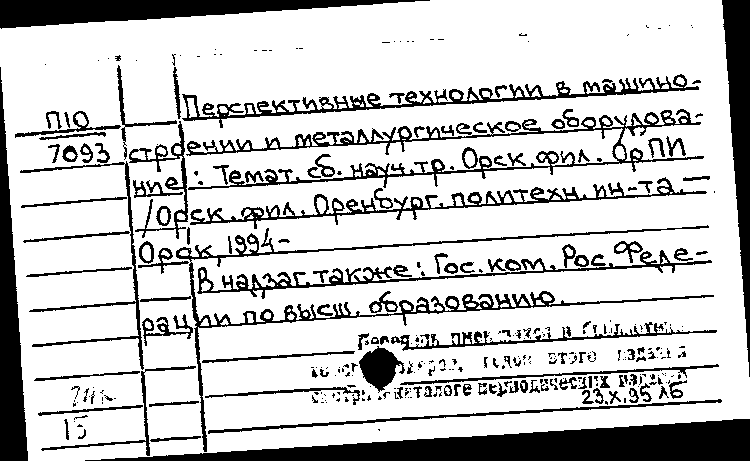 П10
7093
Перспективные технологии в машино-
строении и металлургическое оборудова-
ние: Темат. сб. науч. тр. Орск. фил. ОрПИ
/Орск. фил. Оренбург. политехн. ин-та. —
Орск, 1994-
В надзаг. также: Гос. ком. Рос. Феде-
рации по высш. образованию.
в
этого издания
каталоге периодических изданий
23.X.95 ЛБ
15